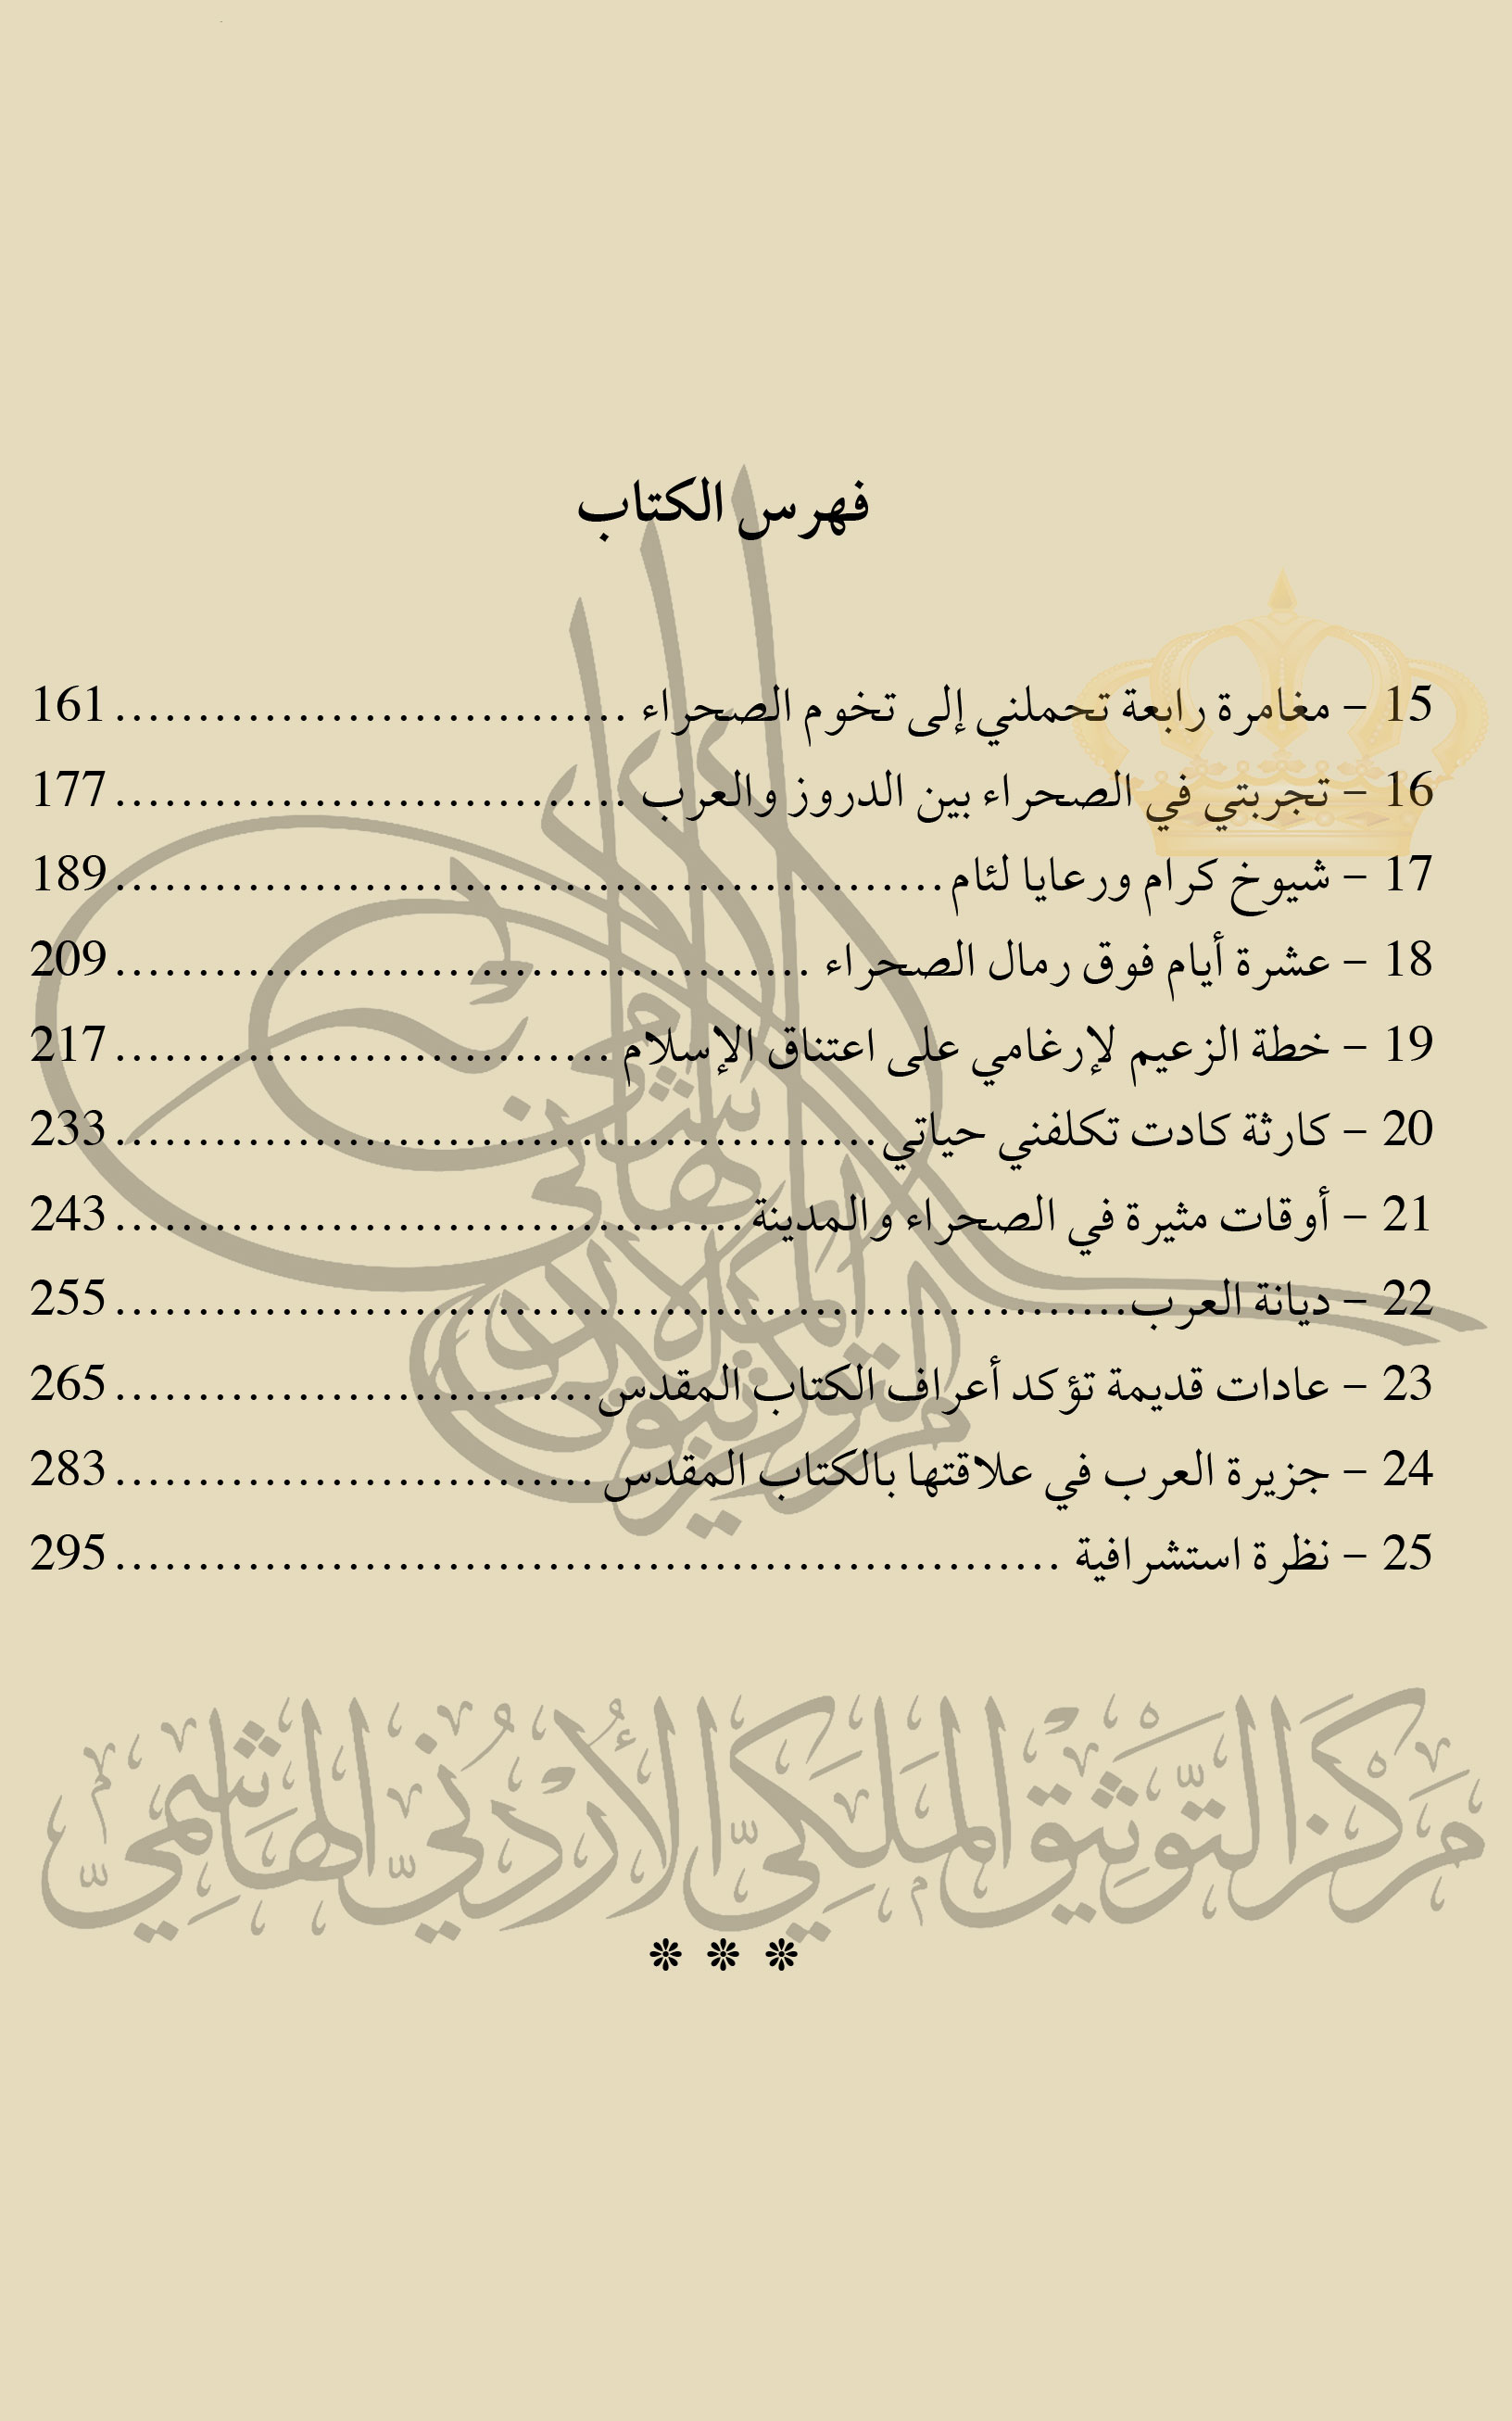 فهرس الكتاب
15 – مغامرة رابعة تحملني إلى تخوم الصحراء ............................... 161
16 – تجربتي في الصحراء بين الدروز والعرب ............................... 177
17 – شيوخ كرام ورعايا لئام.................................................. 189
18 – عشرة أيام فوق رمال الصحراء .......................................... 209
19 – خطة الزعيم لإرغامي على اعتناق الإسلام .............................. 217
20 – كارثة كادت تكلفني حياتي.............................................. 233
21 – أوقات مثيرة في الصحراء والمدينة...................................... 243
22 – ديانة العرب............................................................. 255
23 – عادات قديمة تؤكد أعراف الكتاب المقدس............................. 265
24 – جزيرة العرب في علاقتها بالكتاب المقدس............................. 283
25 – نظرة استشرافية ......................................................... 295
مَركَز التَّوثيق المَلَكيّ الأُردُنيّ الهَاشِميّ